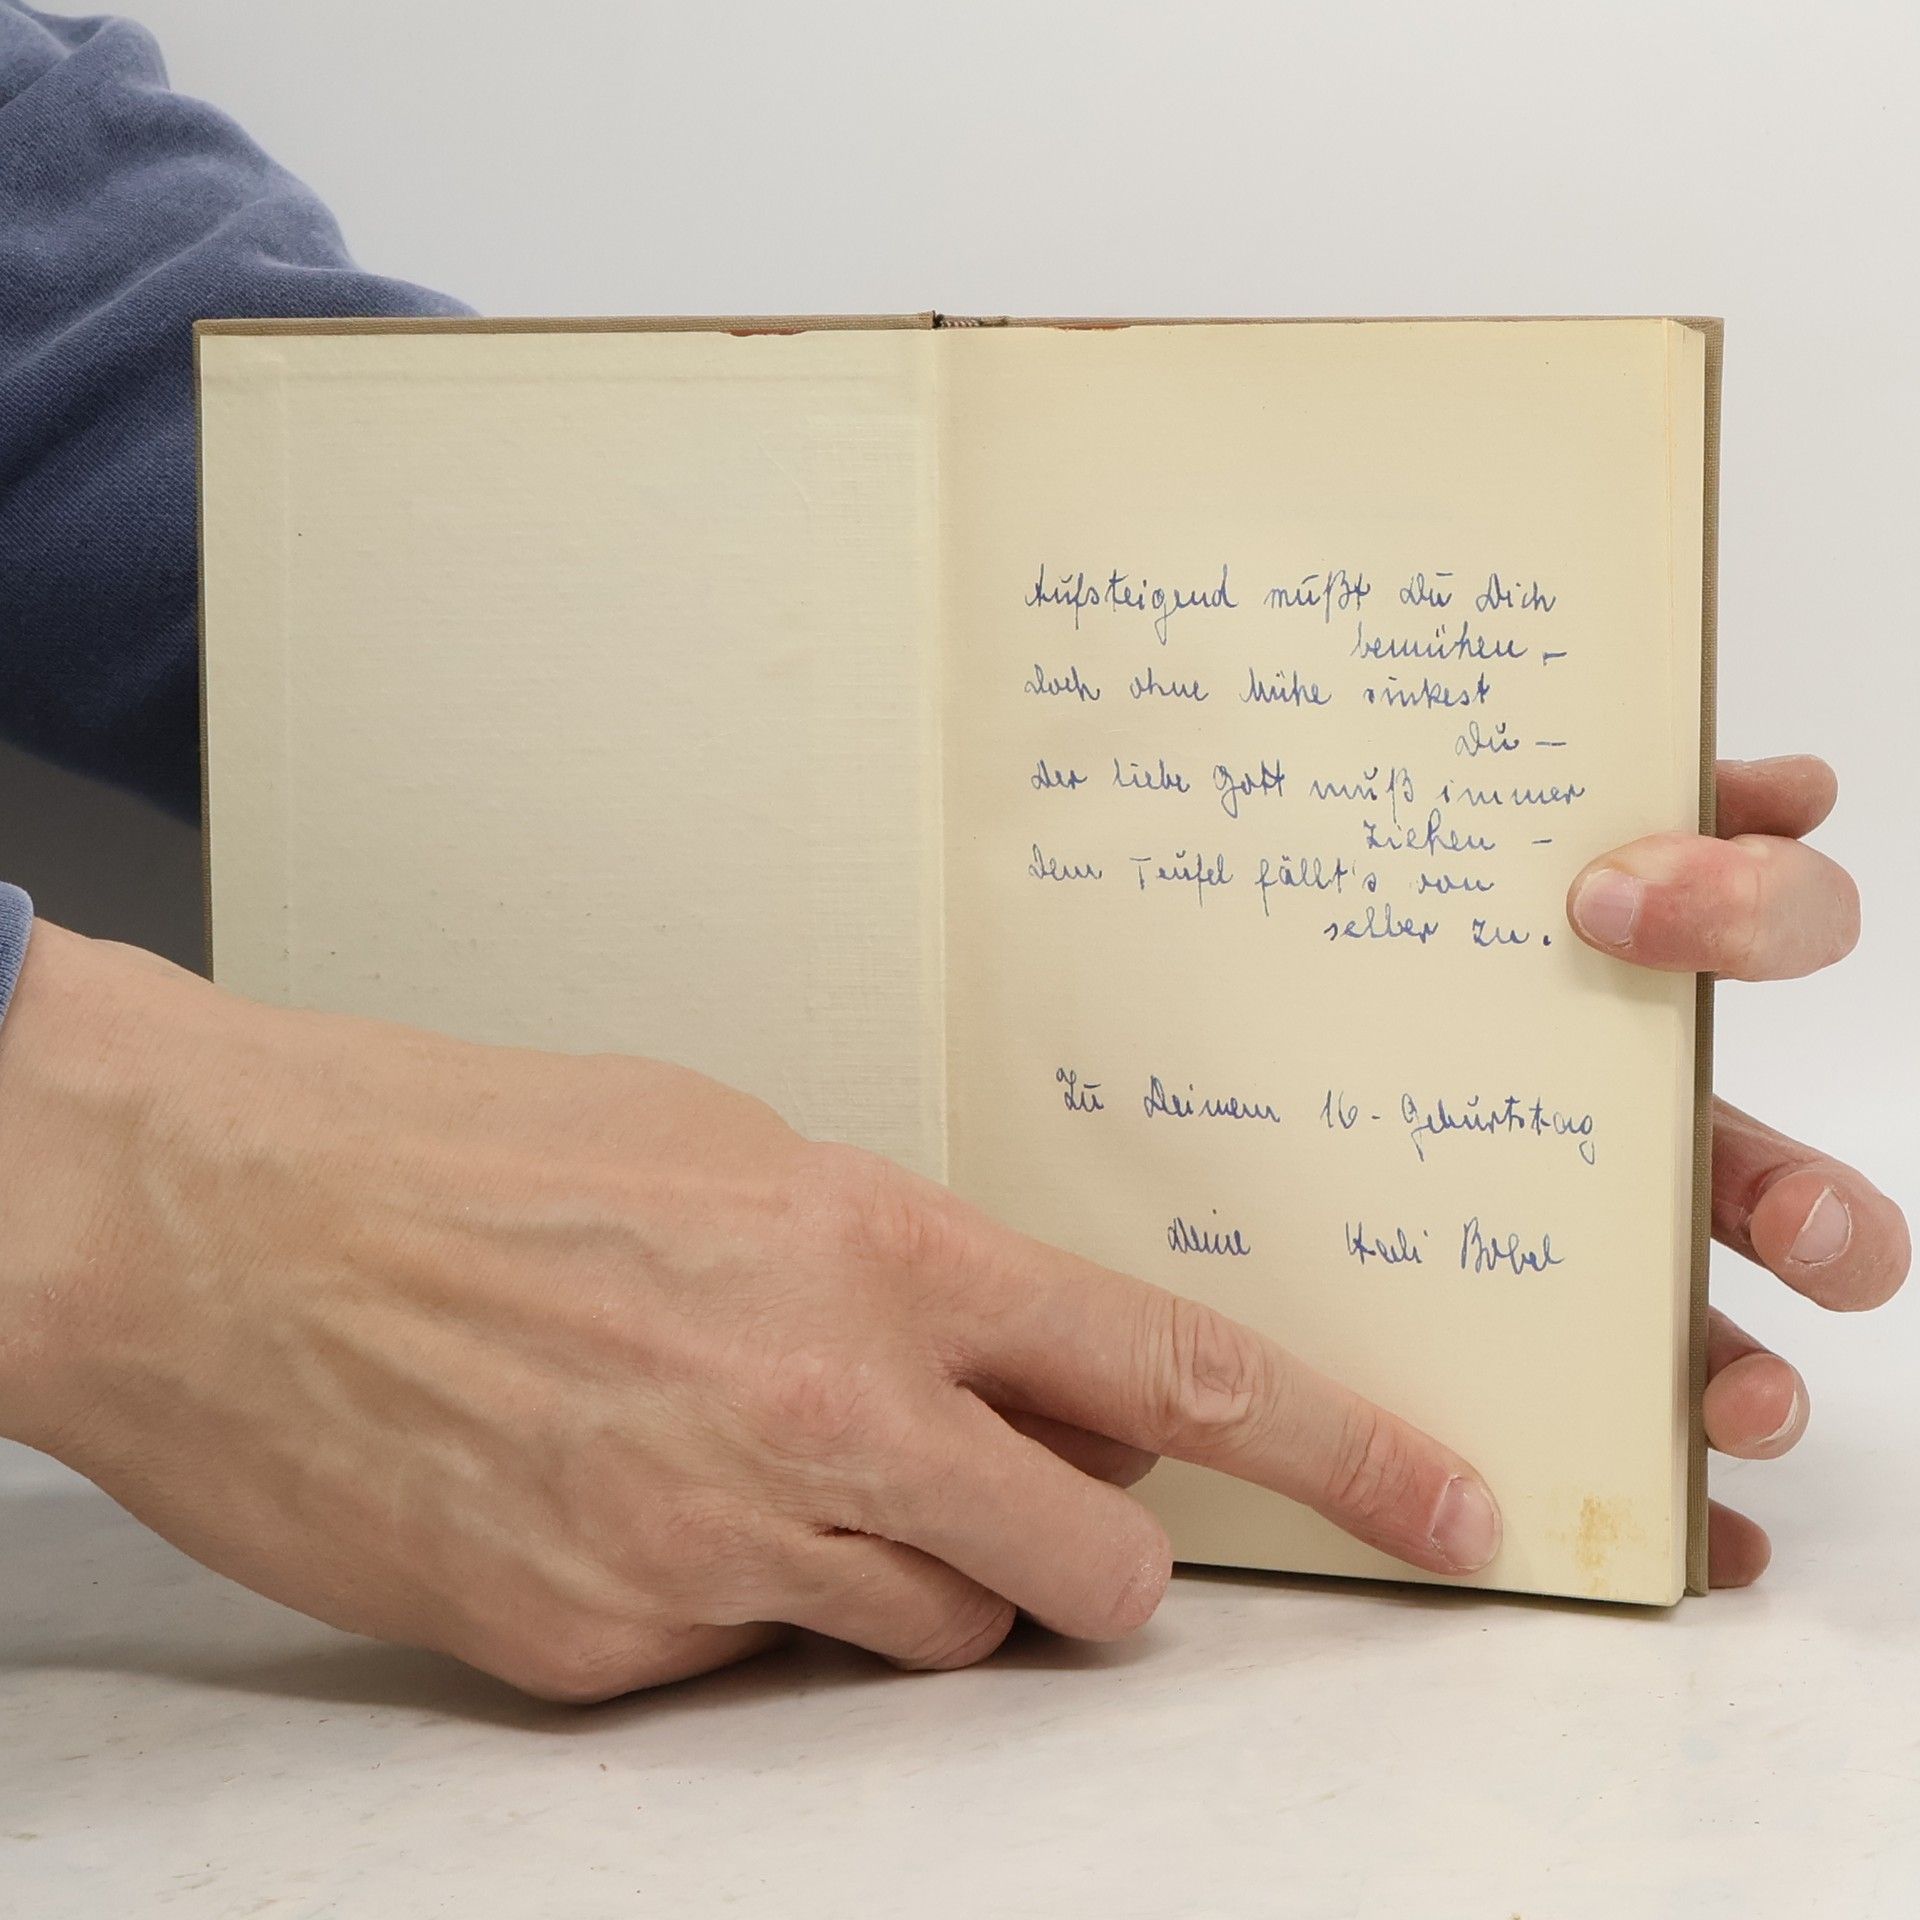 Aufsteigend mußt Du Dich
bemühen, –
Doch ohne Mühe sinkest
Du –
Der liebe Gott muß immer
ziehen –
Dem Teufel fällt's von
selber zu.
Zu Deinem 16. Geburtstag
Deine